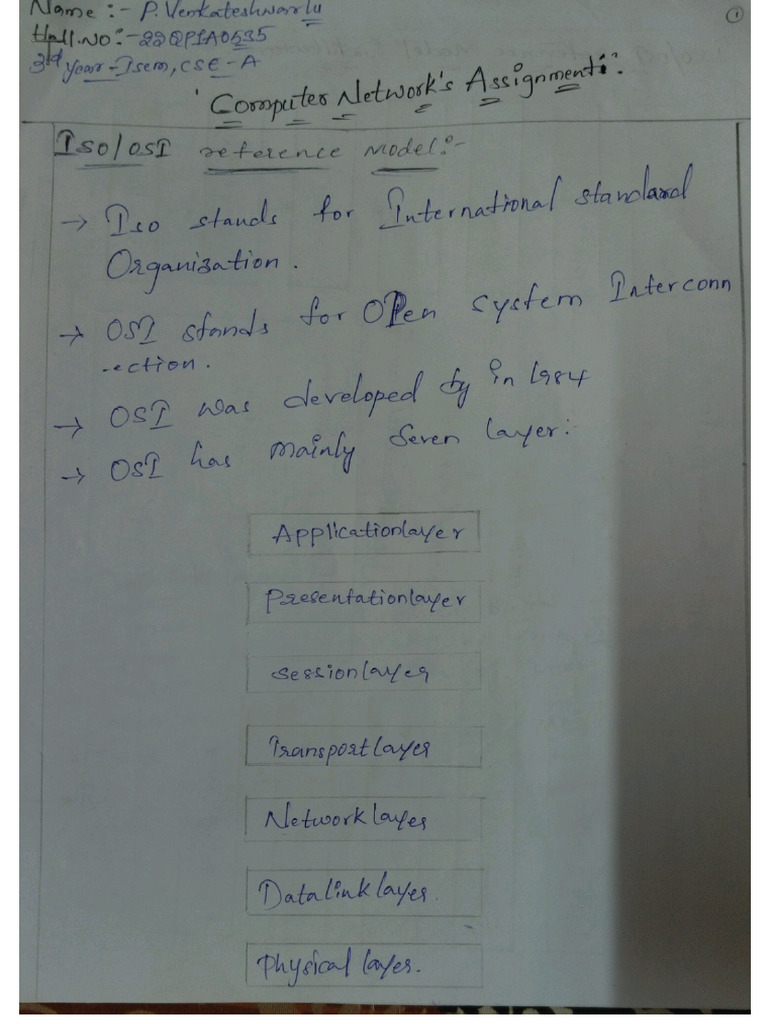 Name :- P. Venkateshwarlu
①
Hall.NO:-22QP1A0535
3rd year-Isem, CSE-A
'Computer Network's Assignment:'
ISO/OSI reference Model:-
→ Iso stands for International standard
Organization.
→ OSI stands for OPen system Interconn
-ection.
→ OSI was developed by in 1984
→ OSI has mainly seven layer:
Applicationlayer
Presentationlayer
sessionlayer
Transportlayer
Network layer
Datalink layer.
Physical layer.